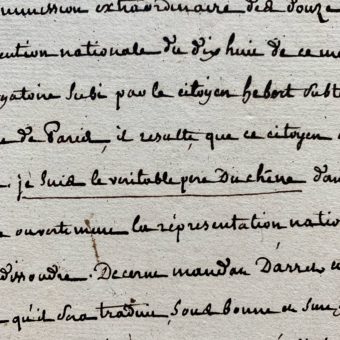 mmission extraordinaire des douze
ention nationale du dix huit de ce mo
gatoire subi par le citoyen hebert subt
e de Paris, il resulte que ce citoyen
je suis le veritable pere Duchêne dan
ouvertement la réprésentation natio
dissoudre. Decerne mandat D'arret
qu'il sera traduit, sous bonne et sure